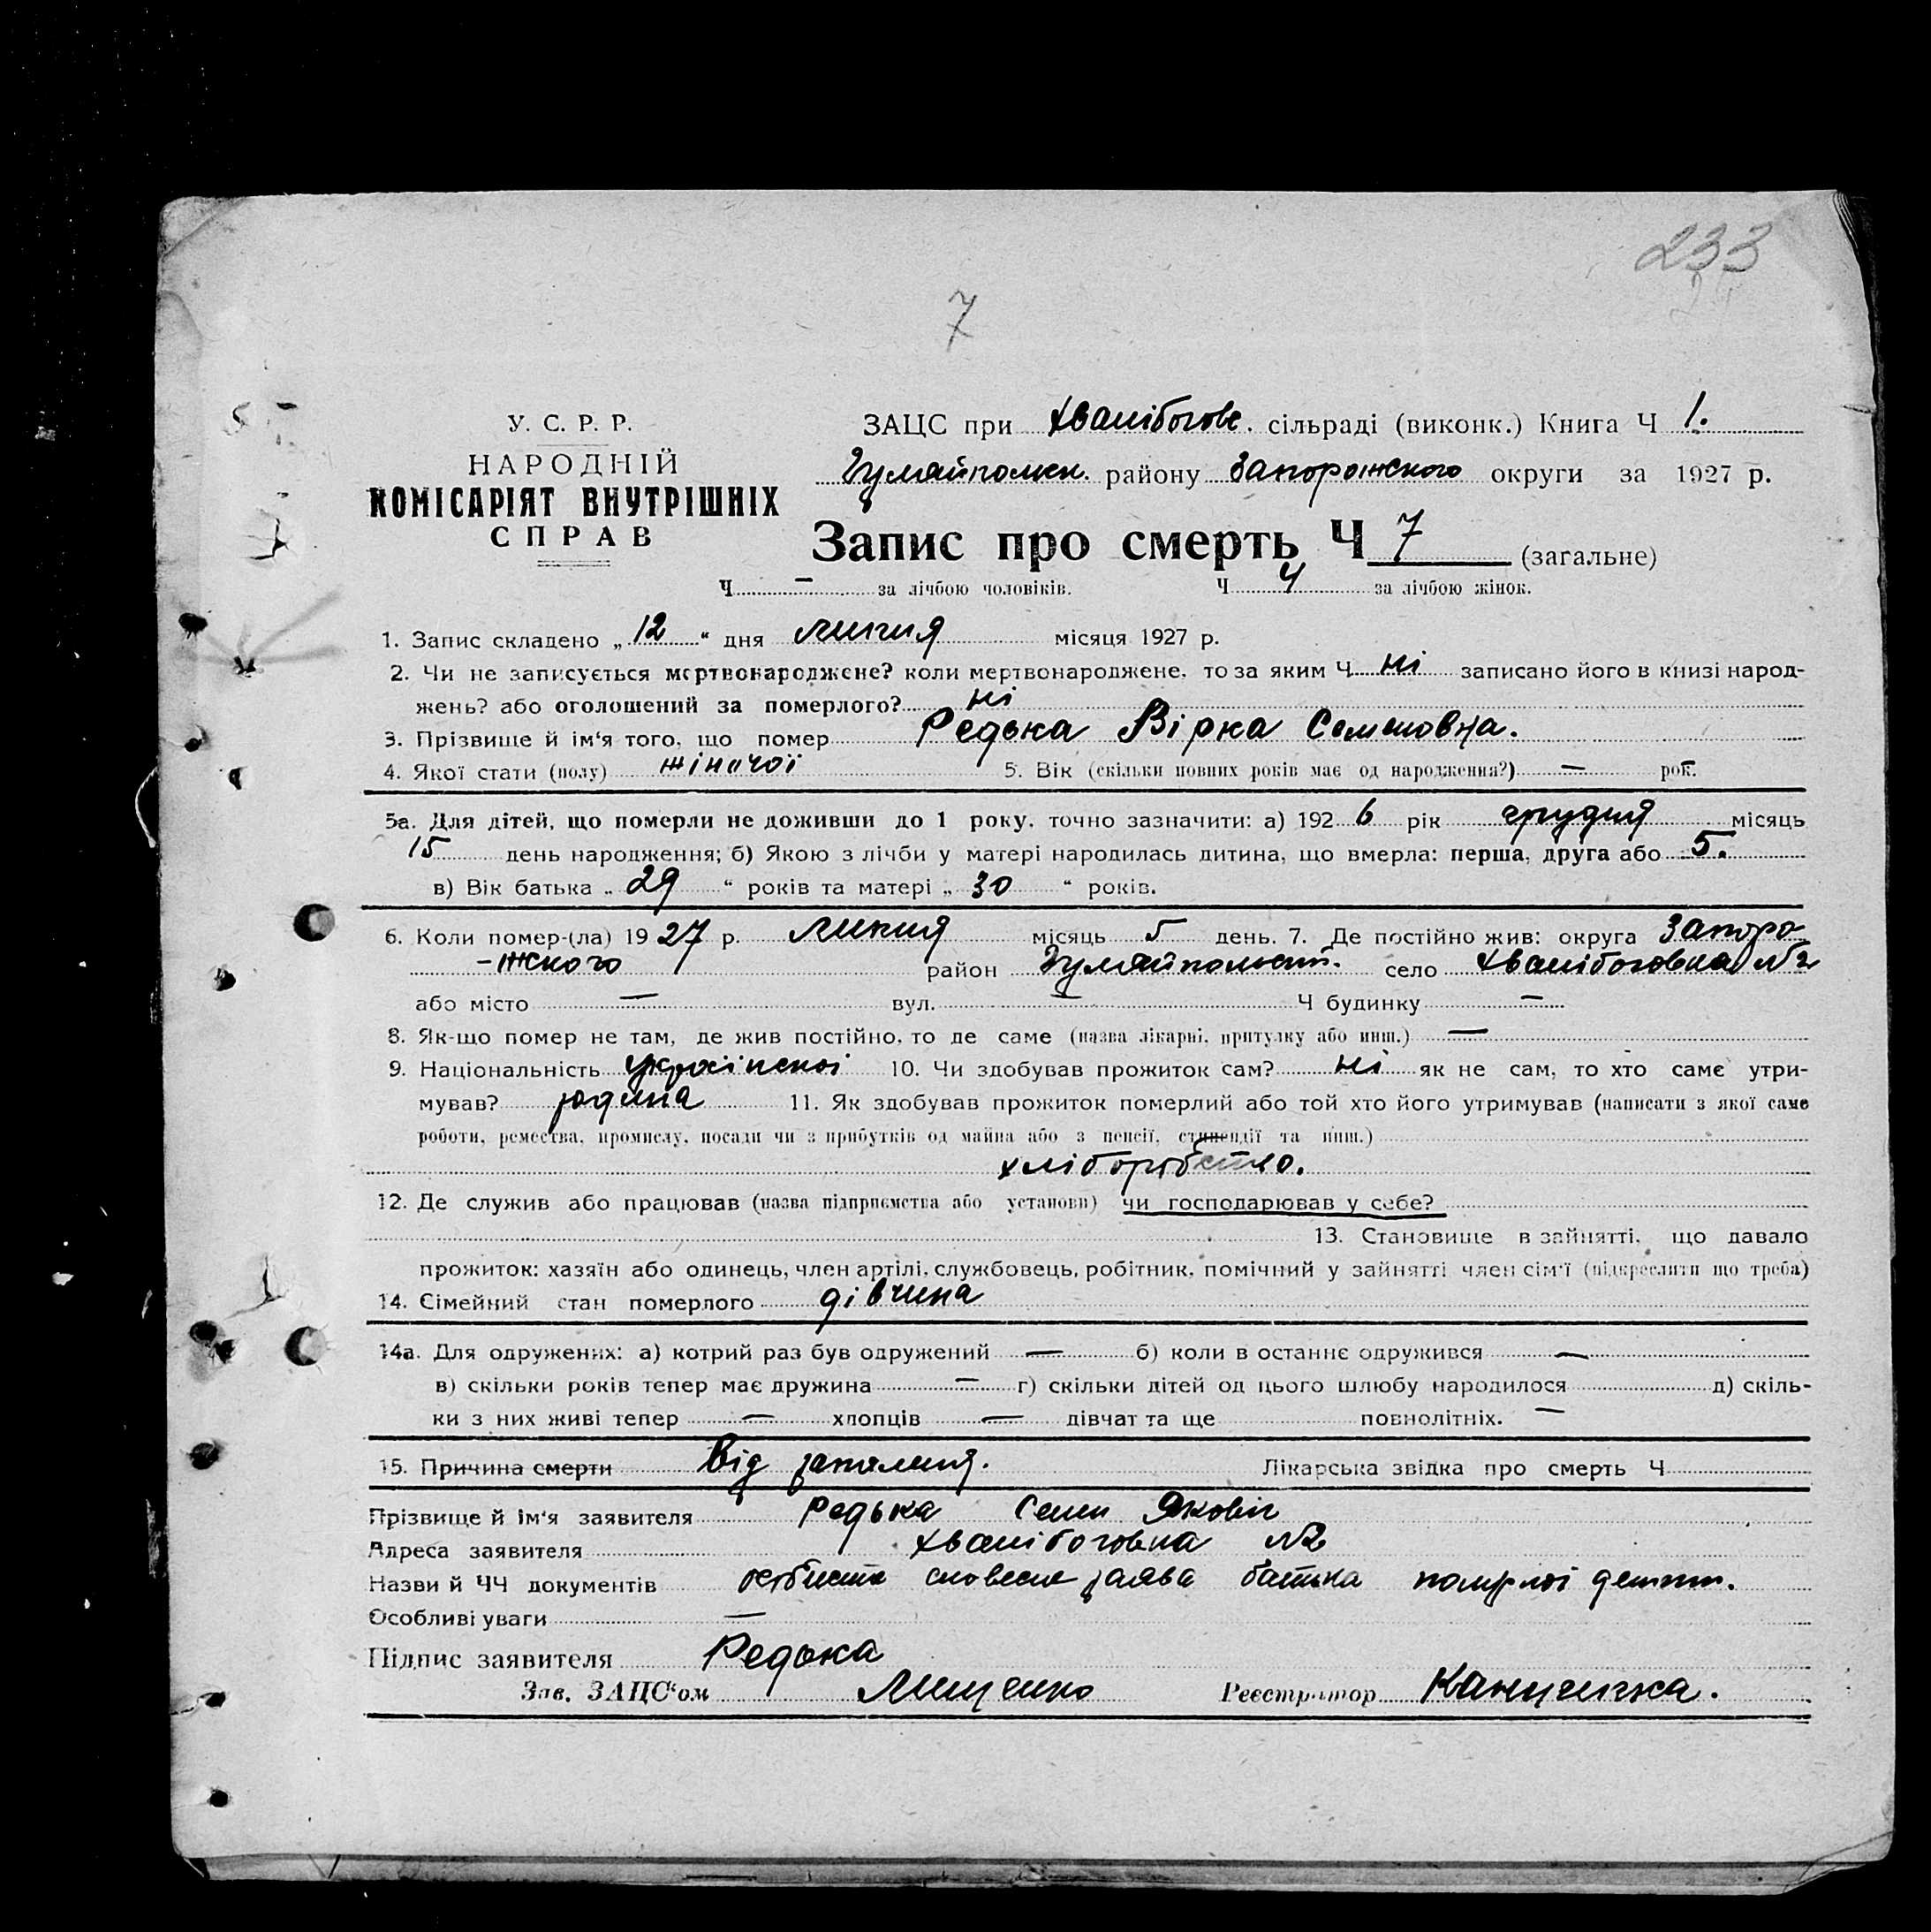 233
7
У. С. Р. Р.
НАРОДНІЙ
КОМІСАРІЯТ ВНУТРІШНІХ
СПРАВ
ЗАЦС при Хвалібогове. сільраді (виконк.) Книга Ч 1.
Гуляйпольск. району Запорожского округи за 1927 р.
Запис про смерть Ч 7 (загальне)
Ч — за лічбою чоловіків. Ч 4 за лічбою жінок.
1. Запис складено „ 12 “ дня липня місяця 1927 р.
2. Чи не записується мертвонароджене? коли мертвонароджене, то за яким Ч ні записано його в книзі народ-
жень? або оголошений за померлого? ні
3. Прізвище й ім'я того, що помер Редька Вірка Семеновна.
4. Якої стати (полу) жіночої 5. Вік (скільки повних років має од народження?) — рок.
5а. Для дітей, що померли не доживши до 1 року, точно зазначити: а) 192 6 рік грудня місяць
15 день народження; б) Якою з лічби у матері народилась дитина, що вмерла: перша, друга або 5.
в) Вік батька „ 29 “ років та матері „ 30 “ років.
6. Коли помер-(ла) 19 27 р. липня місяць 5 день. 7. Де постійно жив: округа Запоро
-жского район Гуляйпольск. село Хвалібоговка №2
або місто — вул. — Ч будинку —
8. Як-що помер не там, де жив постійно, то де саме (назва лікарні, притулку або инш.) —
9. Національність української 10. Чи здобував прожиток сам? ні як не сам, то хто саме утри-
мував? родина 11. Як здобував прожиток померлий або той хто його утримував (написати з якої саме
роботи, ремества, промислу, посади чи з прибутків од майна або з пенсії, стипендії та инш.)
хліборобство.
12. Де служив або працював (назва підприємства або установи) чи господарював у себе?
13. Становище в зайнятті, що давало
прожиток: хазяїн або одинець, член артілі, службовець, робітник, помічний у зайнятті член сім'ї (підкреслити що треба)
14. Сімейний стан померлого дівчина
14а. Для одружених: а) котрий раз був одружений — б) коли в останнє одружився —
в) скільки років тепер має дружина — г) скільки дітей од цього шлюбу народилося д) скіль-
ки з них живі тепер — хлопців — дівчат та ще повнолітніх. —
15. Причина смерти Від запалення. Лікарська звідка про смерть Ч
Прізвище й ім'я заявителя Редька Семен Якович
Адреса заявителя Хвалібоговка №2
Назви й ЧЧ документів особиста словесна заява батька
Особливі уваги —
Підпис заявителя Редька
Зав. ЗАЦС'ом Мищенко Реєстратор